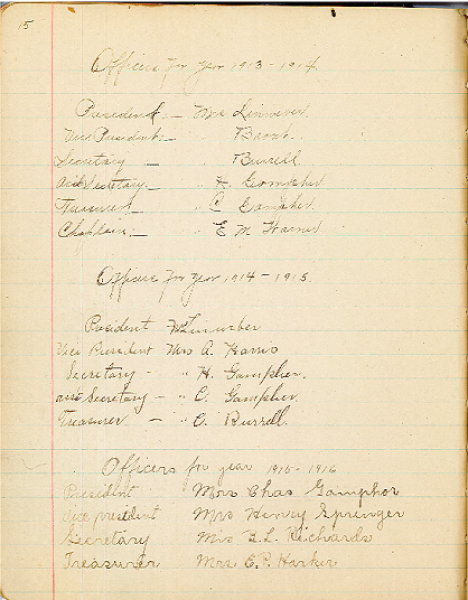 15
Officers for Year 1913-1914
President - Mrs
Vice President - " Brown
Secretary - " Burrell
Asst Secretary - " H. Gompher
Treasurer - " C. Gampher
Chaplain - " E M Harris
Officers for Year 1914-1915.
President
Vice President Mrs A. Harris
Secretary - " H. Gampher.
asst Secretary - " C. Gampher.
Treasurer - " C. Burrell.
Officers for year 1915-1916
President Mrs Chas Gamphor
Vice president Mrs Henry Sprenger
Secretary Mrs L. Richards
Treasurer Mrs E.P. Harker